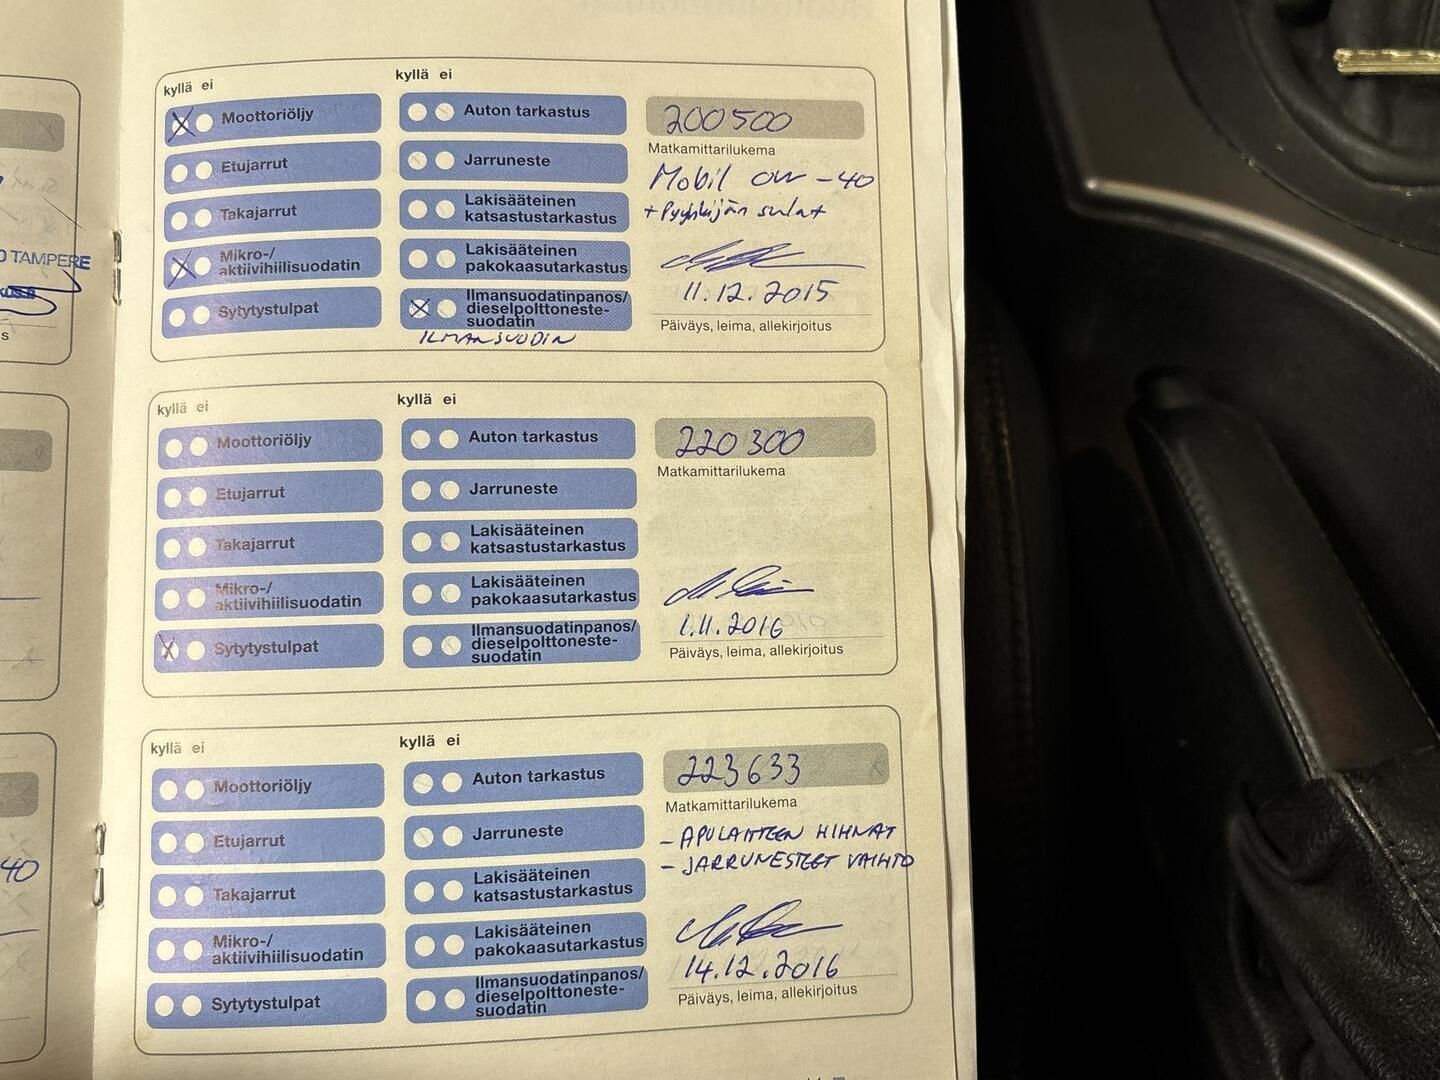 TAMPERE
s
40
kyllä ei
kyllä ei
Moottoriöljy
Etujarrut
Takajarrut
Mikro-/
aktiivihiilisuodatin
Sytytystulpat
Auton tarkastus
Jarruneste
Lakisääteinen
katsastustarkastus
Lakisääteinen
pakokaasutarkastus
Ilmansuodatinpanos/
dieselpolttoneste-
suodatin
ILMANSUODIN
200500
Matkamittarilukema
Mobil 0W-40
+ Pyyhkijän sulat
11.12.2015
Päiväys, leima, allekirjoitus
kyllä ei
kyllä ei
Moottoriöljy
Etujarrut
Takajarrut
Mikro-/
aktiivihiilisuodatin
Sytytystulpat
Auton tarkastus
Jarruneste
Lakisääteinen
katsastustarkastus
Lakisääteinen
pakokaasutarkastus
Ilmansuodatinpanos/
dieselpolttoneste-
suodatin
220300
Matkamittarilukema
1.11.2016
Päiväys, leima, allekirjoitus
kyllä ei
kyllä ei
Moottoriöljy
Etujarrut
Takajarrut
Mikro-/
aktiivihiilisuodatin
Sytytystulpat
Auton tarkastus
Jarruneste
Lakisääteinen
katsastustarkastus
Lakisääteinen
pakokaasutarkastus
Ilmansuodatinpanos/
dieselpolttoneste-
suodatin
223633
Matkamittarilukema
- APULAITTEEN HIHNAT
- JARRUNESTEET VAIHTO
14.12.2016
Päiväys, leima, allekirjoitus